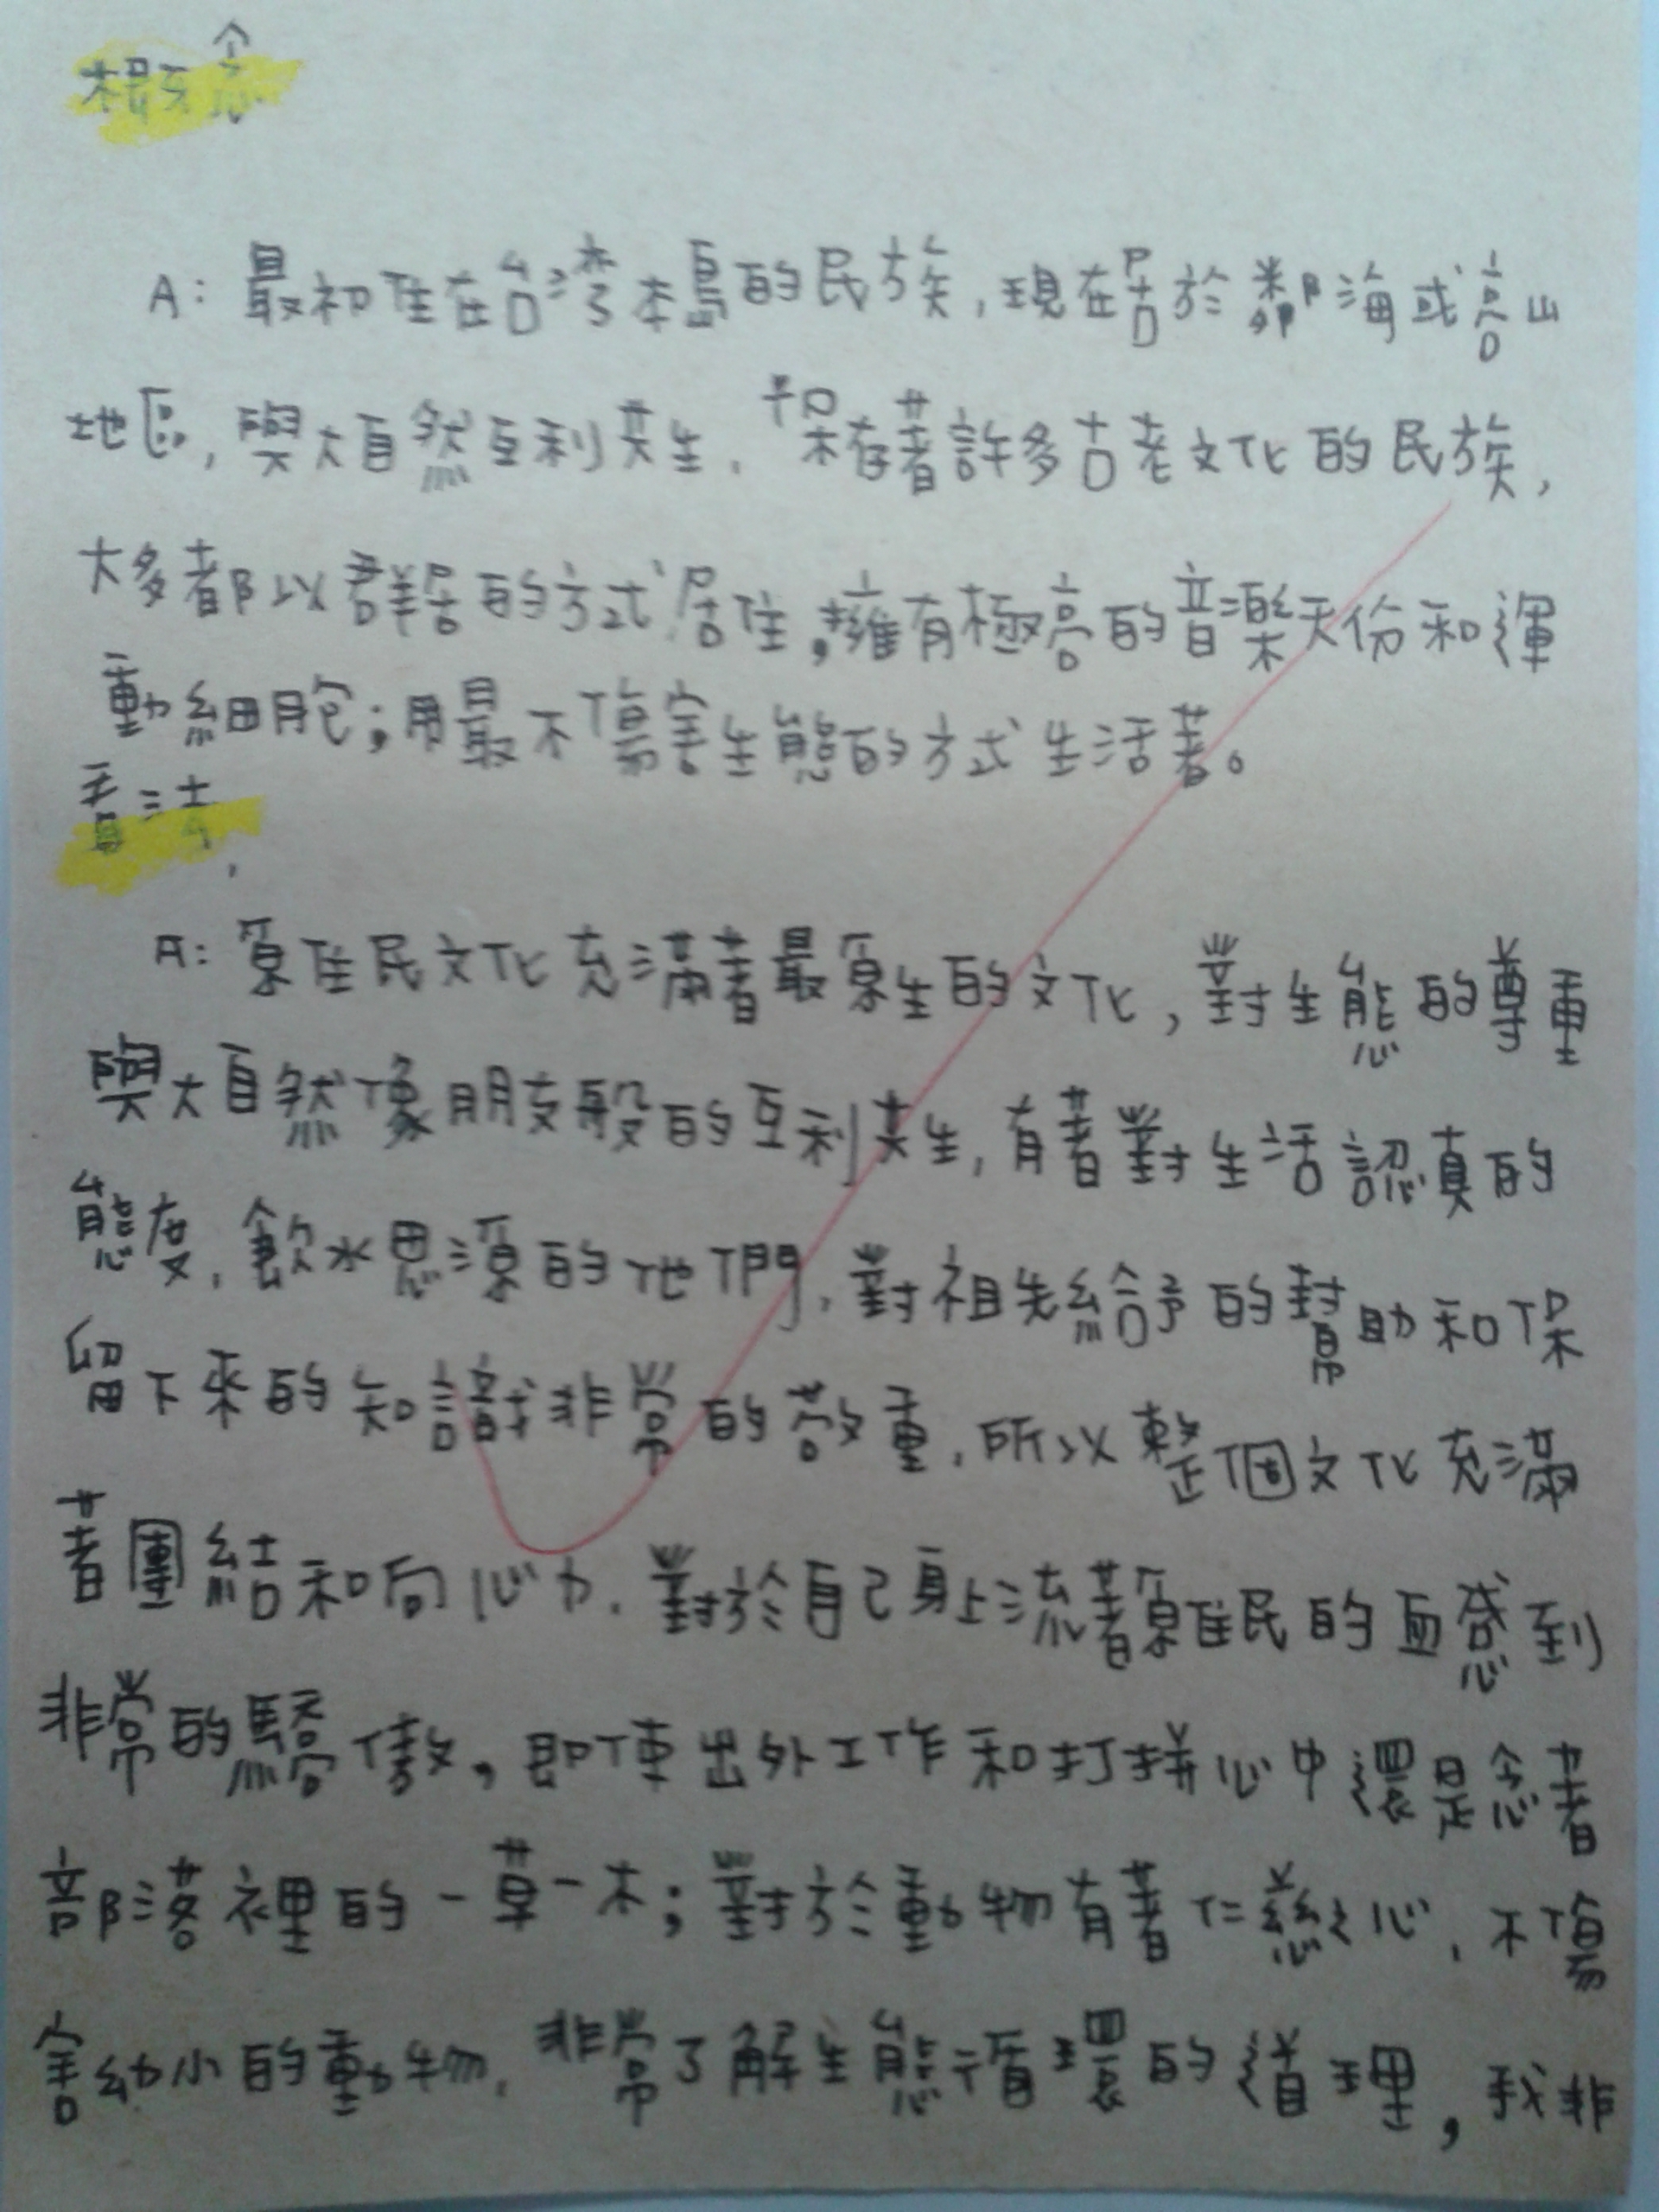 概念
A: 最初住在台灣本島的民族,現在居於鄰海或高山
地區,與大自然互利共生,保存著許多古老文化的民族,
大多都以群居的方式居住,擁有極高的音樂天份和運
動細胞;用最不傷害生態的方式生活著。
看法
A: 原住民文化充滿著最原生的文化,對生態的尊重
與大自然像朋友般的互利共生,有著對生活認真的
態度,飲水思源的他們,對祖先給予的幫助和保
留下來的知識非常的敬重,所以整個文化充滿
著團結和向心力,對於自己身上流著原住民的血感到
非常的驕傲,即使出外工作和打拼心中還是念著
部落裡的一草一木;對於動物有著仁慈之心,不傷
害幼小的動物,非常了解生態循環的道理,我非